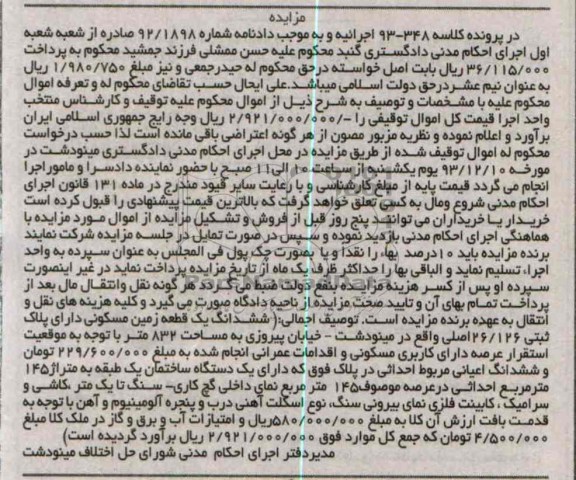 مزایده
در پرونده کلاسه ۳۴۸-۹۳ اجرائیه و به موجب دادنامه شماره ۹۲/۱۸۹۸ صادره از شعبه شعبه
اول اجرای احکام مدنی دادگستری گنبد محکوم علیه حسن ممشلی فرزند جمشید محکوم به پرداخت
۳۶/۱۱۵/۰۰۰ ریال بابت اصل خواسته درحق محکوم له حیدرجمعی و نیز مبلغ ۱/۹۸۰/۷۵۰ ریال
به عنوان نیم عشردرحق دولت اسلامی میباشد.علی ایحال حسب تقاضای محکوم له و تعرفه اموال
محکوم علیه با مشخصات و توصیف به شرح ذیل از اموال محکوم علیه توقیف و کارشناس منتخب
واحد اجرا قیمت کل اموال توقیفی را -/۲/۹۲۱/۰۰۰/۰۰۰ ریال وجه رایج جمهوری اسلامی ایران
برآورد و اعلام نموده و نظریه مزبور مصون از هر گونه اعتراضی باقی مانده است لذا حسب درخواست
محکوم له اموال توقیف شده از طریق مزایده در محل اجرای احکام مدنی دادگستری مینودشت در
مورخه ۹۳/۱۲/۱۰ یوم یکشنبه از ساعت ۱۰ الی۱۱ صبح با حضور نماینده دادسرا و ماموراجرا
انجام می گردد قیمت پایه از مبلغ کارشناسی و با رعایت سایر قیود مندرج در ماده ۱۳۱ قانون اجرای
احکام مدنی شروع ومال به کسی تعلق خواهد گرفت که بالاترین قیمت پیشنهادی را قبول کرده است
خریدار یا خریداران می توانند پنج روز قبل از فروش و تشکیل مزایده از اموال مورد مزایده با
هماهنگی اجرای احکام مدنی بازدید نموده و سپس در صورت تمایل در جلسه مزایده شرکت نمایند
برنده مزایده باید ۱۰درصد بهاء را نقدا و یا بصورت چک پول فی المجلس به عنوان سپرده به واحد
اجراء تسلیم نماید و الباقی بها را حداکثر ظرف یک ماه از تاریخ مزایده پرداخت نماید در غیر اینصورت
سپرده او پس از کسر هزینه مزایده بنفع دولت ضبط می گردد هر گونه نقل وانتقال مال بعد از
پرداخت تمام بهای آن و تایید صحت مزایده از ناحیه دادگاه صورت می گیرد و کلیه هزینه های نقل و
انتقال به عهده برنده مزایده است. توصیف اجمالی:( ششدانگ یک قطعه زمین مسکونی دارای پلاک
ثبتی ۲۶/۱۲۶اصلی واقع در مینودشت - خیابان پیروزی به مساحت ۸۳۲ متر با توجه به موقعیت
استقرار عرصه دارای کاربری مسکونی و اقدامات عمرانی انجام شده به مبلغ ۲۲۹/۶۰۰/۰۰۰ تومان
و ششدانگ اعیانی مربوط احداثی در پلاک فوق که دارای یک دستگاه ساختمان یک طبقه به متراژ۱۴۵
مترمربع احداثی درعرصه موصوف۱۴۵ متر مربع نمای داخلی گچ کاری- سنگ تا یک متر ،کاشی و
سرامیک ، کابینت فلزی نمای بیرونی سنگ، نوع اسکلت آهنی درب و پنجره آلومینیوم و آهن با توجه به
قدمت بافت ارزش آن کلا به مبلغ ۵۸۰/۰۰۰/۰۰۰ریال و امتیازات آب و برق و گاز در ملک کلا مبلغ
۴/۵۰۰/۰۰۰ تومان که جمع کل موارد فوق ۲/۹۲۱/۰۰۰/۰۰۰ ریال برآورد گردیده است)
مدیردفتر اجرای احکام مدنی شورای حل اختلاف مینودشت